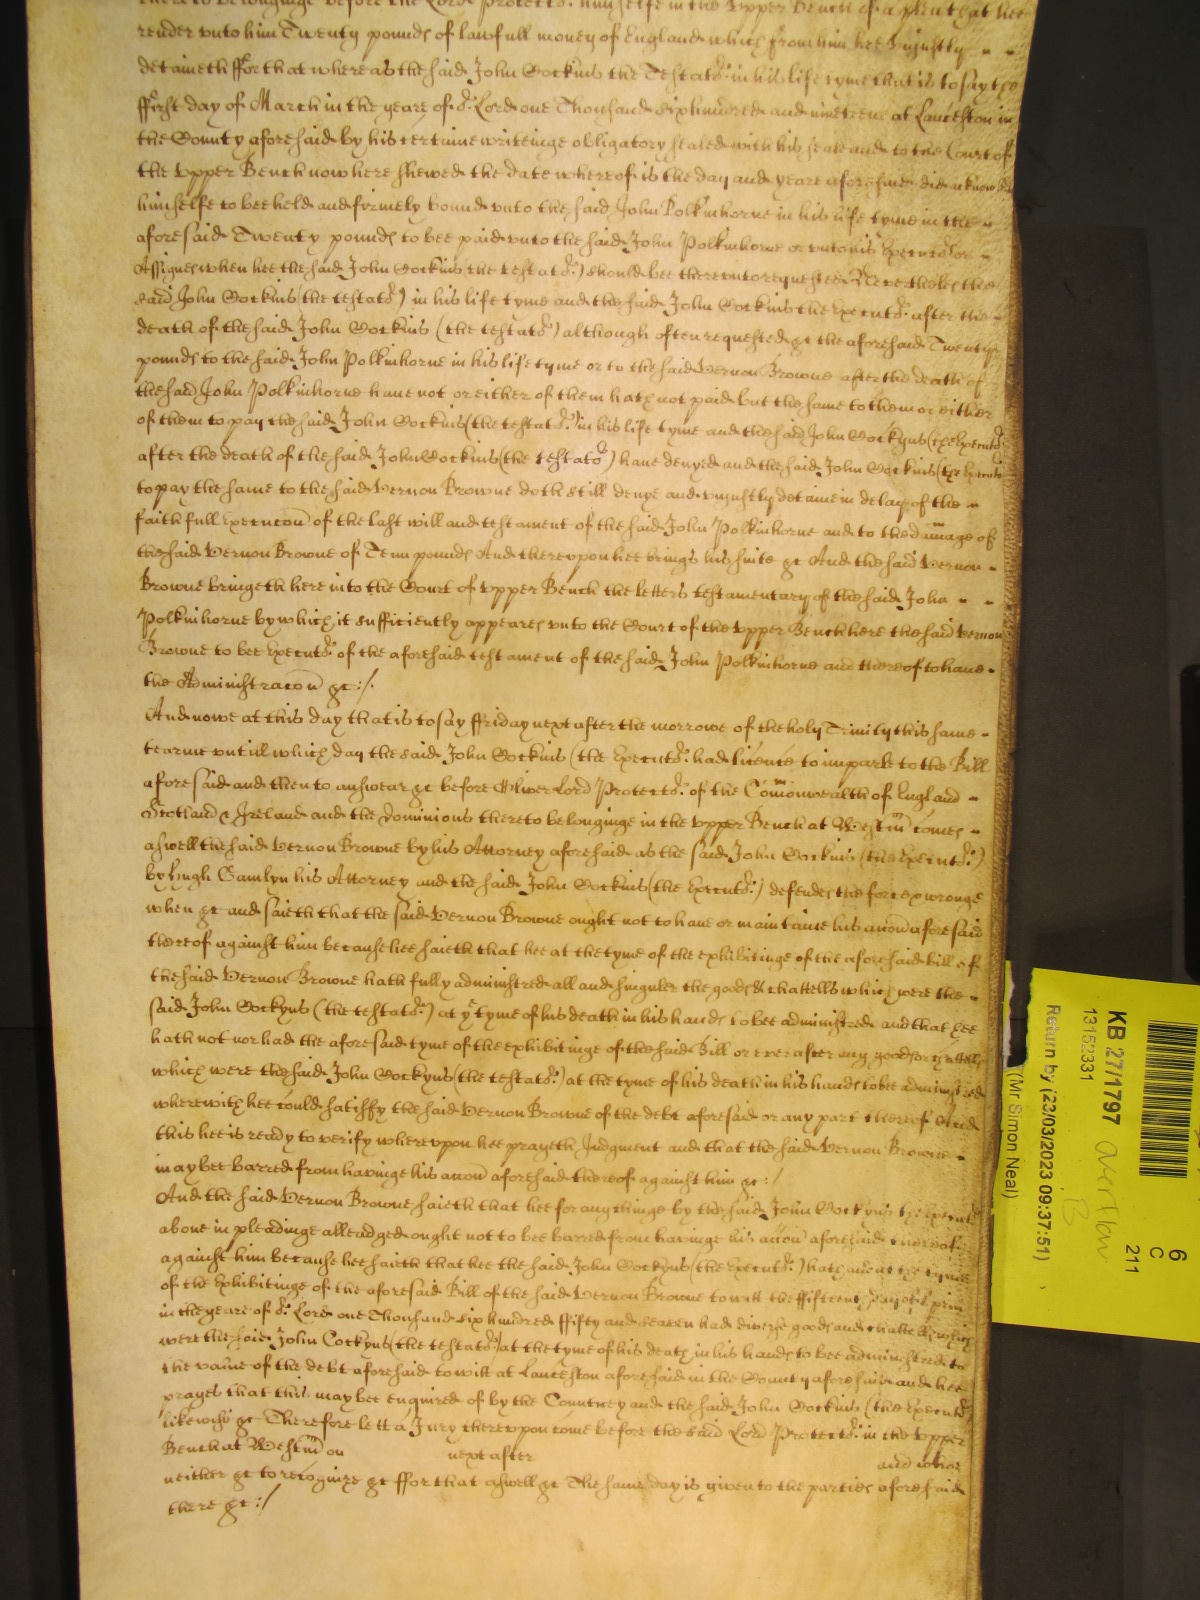 there to belonginge before the Lord Protectoʳ: himselfe in the Upper Bench of a plea that hee
render unto him Twenty pounds of lawfull money of England which from him hee unjustly - -
detaineth ffor that whereas the said John Cockins the Testatoʳ: in his life tyme that is to say the
ffirst day of March in the yeare of oʳ: Lord one Thousand six hundred and nineteene at Lanceston in
the County aforesaid by his certaine writeinge obligatory sealed with his seale and to the Court of
the Upper Bench now here shewed the date whereof is the day and yeare aforesaid did acknowledge
himselfe to bee held and firmely bound unto the said John Polkinhorne in his life tyme in the -
aforesaid Twenty pounds to bee paid unto the said John Polkinhorne or unto his Executoʳ: or -
Assignes when hee the said John Cockins the testatoʳ:) should bee thereunto requested Neverthelesse the
said John Cockins (the testatoʳ:) in his life tyme and the said John Cockins the Executoʳ: after the -
death of the said John Cockins (the testatoʳ:) although often requested &c the aforesaid Twenty
pounds to the said John Polkinhorne in his life tyme or to the said Vernon Browne after the death of
the said John Polkinhorne have not or either of them hath not paid but the same to them or either
of them to pay the said John Cockins (the testatoʳ:) in his life tyme and the said John Cockyns (the Executoʳ:
after the death of the said John Cockins (the testatoʳ:) have denyed and the said John Cockins (the Executoʳ
to pay the same to the said Vernon Browne doth still denye and unjustly detaine in delay of the -
faithfull Execucon of the last will and testament of the said John Polkinhorne and to the damage of
the said Vernon Browne of Tenn pounds And thereupon hee brings his suite &c And the said Vernon -
Browne bringeth here into the Court of Upper Bench the letters testamentary of the said John - -
Polkinhorne by which it sufficiently appeares unto the Court of the Upper Bench here the said Vernon
Browne to bee Executoʳ: of the aforesaid testament of the said John Polkinhorne and thereof to have -
the Administracon &c:/.
And nowe at this day that is to say ffriday next after the morrowe of the holy Trinity this same -
tearme untill which day the said John Cockins (the Executoʳ: had licence to imparle to the Bill
aforesaid and then to answear &c before Oliver Lord Protectoʳ: of the Comonwealth of England -
Scotland & Ireland and the Dominions thereto belonginge in the Upper Bench at Westm̄ comes -
aswell the said Vernon Browne by his Attorney aforesaid as the said John Cockins (the Executoʳ:)
by Hugh Gamlyn his Attorney and the said John Cockins (the Executoʳ:) defendes the force & wronge
when &c and saieth that the said Vernon Browne ought not to have or maintaine his accon aforesaid
thereof against him because hee saieth that hee at the tyme of the exhibitinge of the aforesaid Bill of
the said Vernon Browne hath fully administred all and singuler the goods & chattells which were the -
said John Cockyns (the testatoʳ:) at yᵉ tyme of his death in his hands to bee administred and that hee
hath not nor had the aforesaid tyme of the exhibitinge of the said Bill or ever after any goods or chattells
which were the said John Cockyns (the testatoʳ:) at the tyme of his death in his hands to bee administred
wherewith hee could satisfy the said Vernon Browne of the debt aforesaid or any part thereof And
this hee is ready to verify whereupon hee prayeth Judgment and that the said Vernon Browne -
may bee barred from havinge his accon aforesaid thereof against him &c:/
And the said Vernon Browne saieth that hee for any thinge by the said John Cockyns the Executoʳ
above in pleadinge alleadged ought not to bee barred from havinge his accon aforesaid thereof
against him because hee saieth that hee the said John Cockyns (the Executoʳ:) hath att the tyme
of the Exhibitinge of the aforesaid Bill of the said Vernon Browne to witt the ffifteenth day of Aprill
in the yeare of oʳ: Lord one Thousand six hundred ffifty and seaven had diverse goods and chattells which
were the said John Cockyns (the testatoʳ:) at the tyme of his death in his hands to bee administred to
the value of the debt aforesaid to witt at Lanceston aforesaid in the County aforesaid and hee
prayes that this may bee enquired of by the Countrey and the said John Cockins (the Executoʳ)
likewise &c Therefore lett a Jury thereupon come before the said Lord Protectoʳ: in the Upper
Bench at Westm̄ on next after and whoe
neither &c to recognize &c ffor that aswell &c The same day is given to the parties aforesaid
there &c:/
KB 27/1797
13152331
Return by (23/03/2023 09:37:51)
(Mr Simon Neal)
overflow
6
C
211